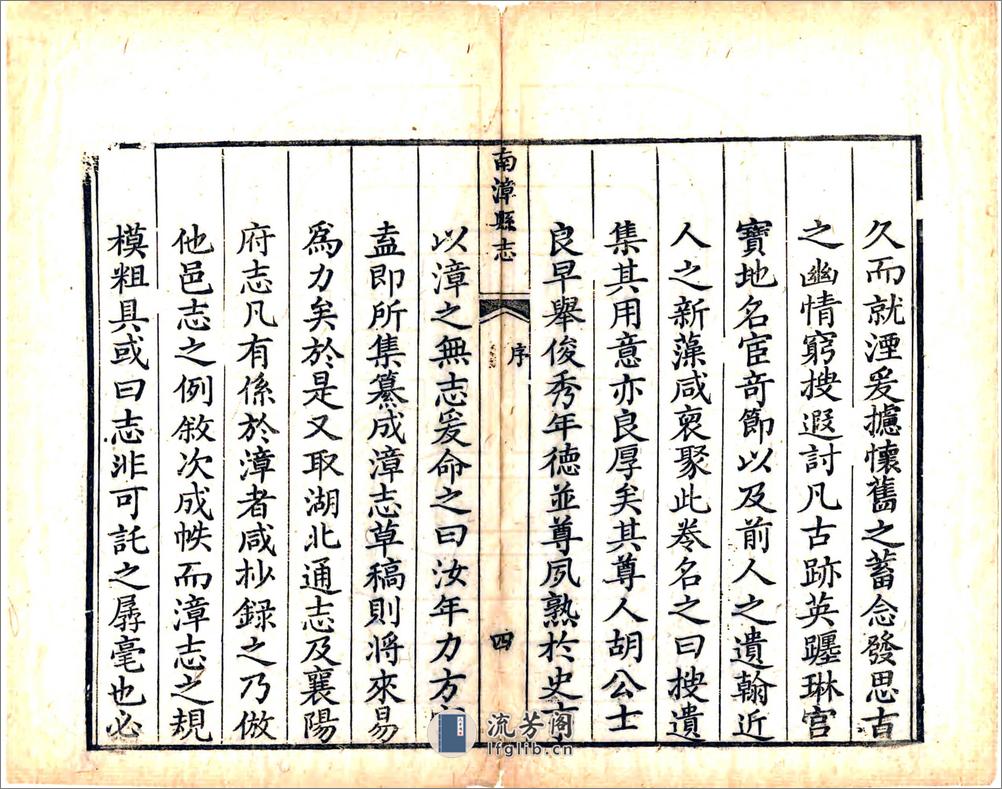 久而就湮爰攄懷舊之蓄念發思古
之幽情窮搜遐討凡古跡英躔琳宫
寶地名宦奇節以及前人之遺翰近
人之新藻咸裒聚此卷名之曰搜遺
集其用意亦良厚矣其尊人胡公士
良早舉俊秀年德並尊夙熟於史
南漳縣志
序
四
以漳之無志爰命之曰汝年力方
盍即所集纂成漳志草稿則將來易
爲力矣於是又取湖北通志及襄陽
府志凡有係於漳者咸抄錄之乃倣
他邑志之例敘次成帙而漳志之規
模粗具或曰志非可託之孱毫也必
流芳阁
lfglib.cn